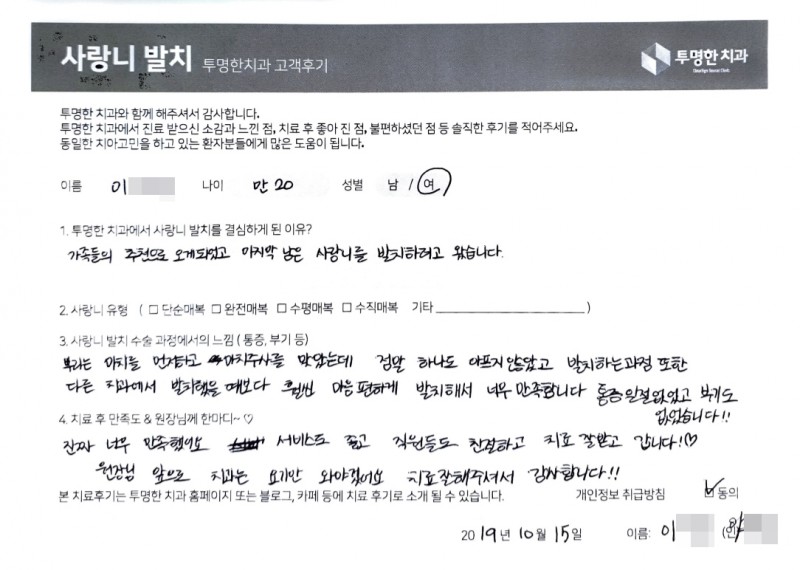 사랑니 발치 투명한치과 고객후기
투명한 치과
투명한 치과와 함께 해주셔서 감사합니다.
투명한 치과에서 진료 받으신 소감과 느낀 점, 치료 후 좋아 진 점, 불편하셨던 점 등 솔직한 후기를 적어주세요.
동일한 치아고민을 하고 있는 환자분들에게 많은 도움이 됩니다.
이름 이 나이 만 20 성별 남 / 여
1. 투명한 치과에서 사랑니 발치를 결심하게 된 이유?
가족들의 추천으로 오게되었고 마지막 남은 사랑니를 발치하려고 왔습니다.
2. 사랑니 유형 ( □ 단순매복 □ 완전매복 □ 수평매복 □ 수직매복 기타 )
3. 사랑니 발치 수술 과정에서의 느낌 ( 통증, 부기 등)
마취를 먼저하고 마취주사를 맞았는데 정말 하나도 아프지 않았고 발치하는과정 또한
다른 치과에서 발치했을 때보다 훨씬 마음 편하게 발치해서 너무 만족합니다 통증 일절 없었고 붓기도
없었습니다!!
4. 치료 후 만족도 & 원장님께 한마디~ ♡
진짜 너무 만족했어요 서비스도 좋고 직원들도 친절하고 치료 잘받고 갑니다!♡
원장님 앞으로 치과는 여기만 와야겠어요 치료잘해주셔서 감사합니다!!
본 치료후기는 투명한 치과 홈페이지 또는 블로그, 카페 등에 치료 후기로 소개 될 수 있습니다. 개인정보 취급방침 ☑ 동의
2019년 10월 15일 이름: 이 (인)